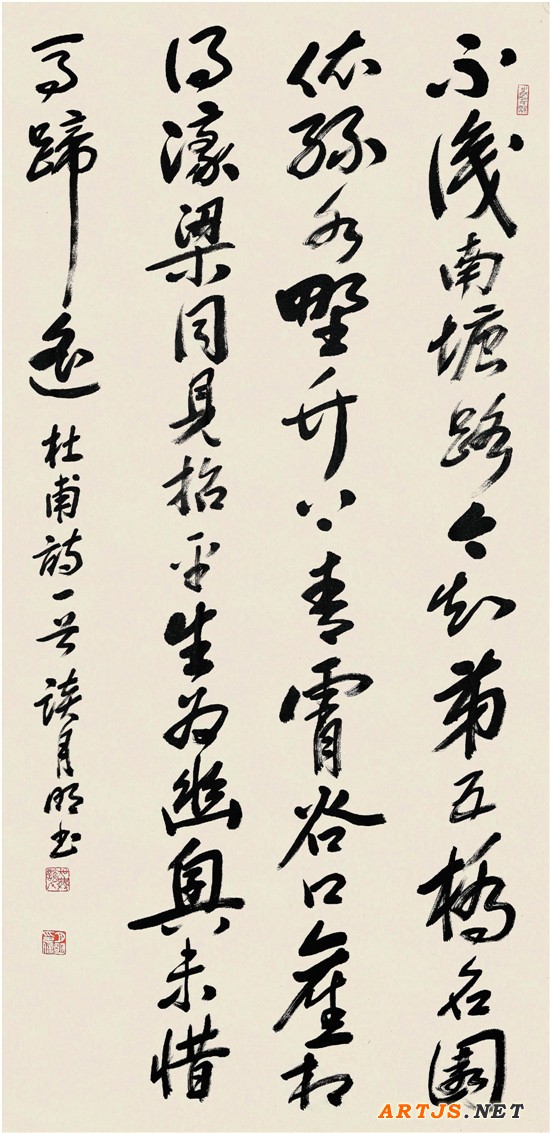 不識南塘路今知第五橋名園
依綠水野竹上青霄谷口舊相
得濠梁同見招平生為幽興未惜
馬蹄遙
杜甫詩一首 談月明書
ARTJS.NET